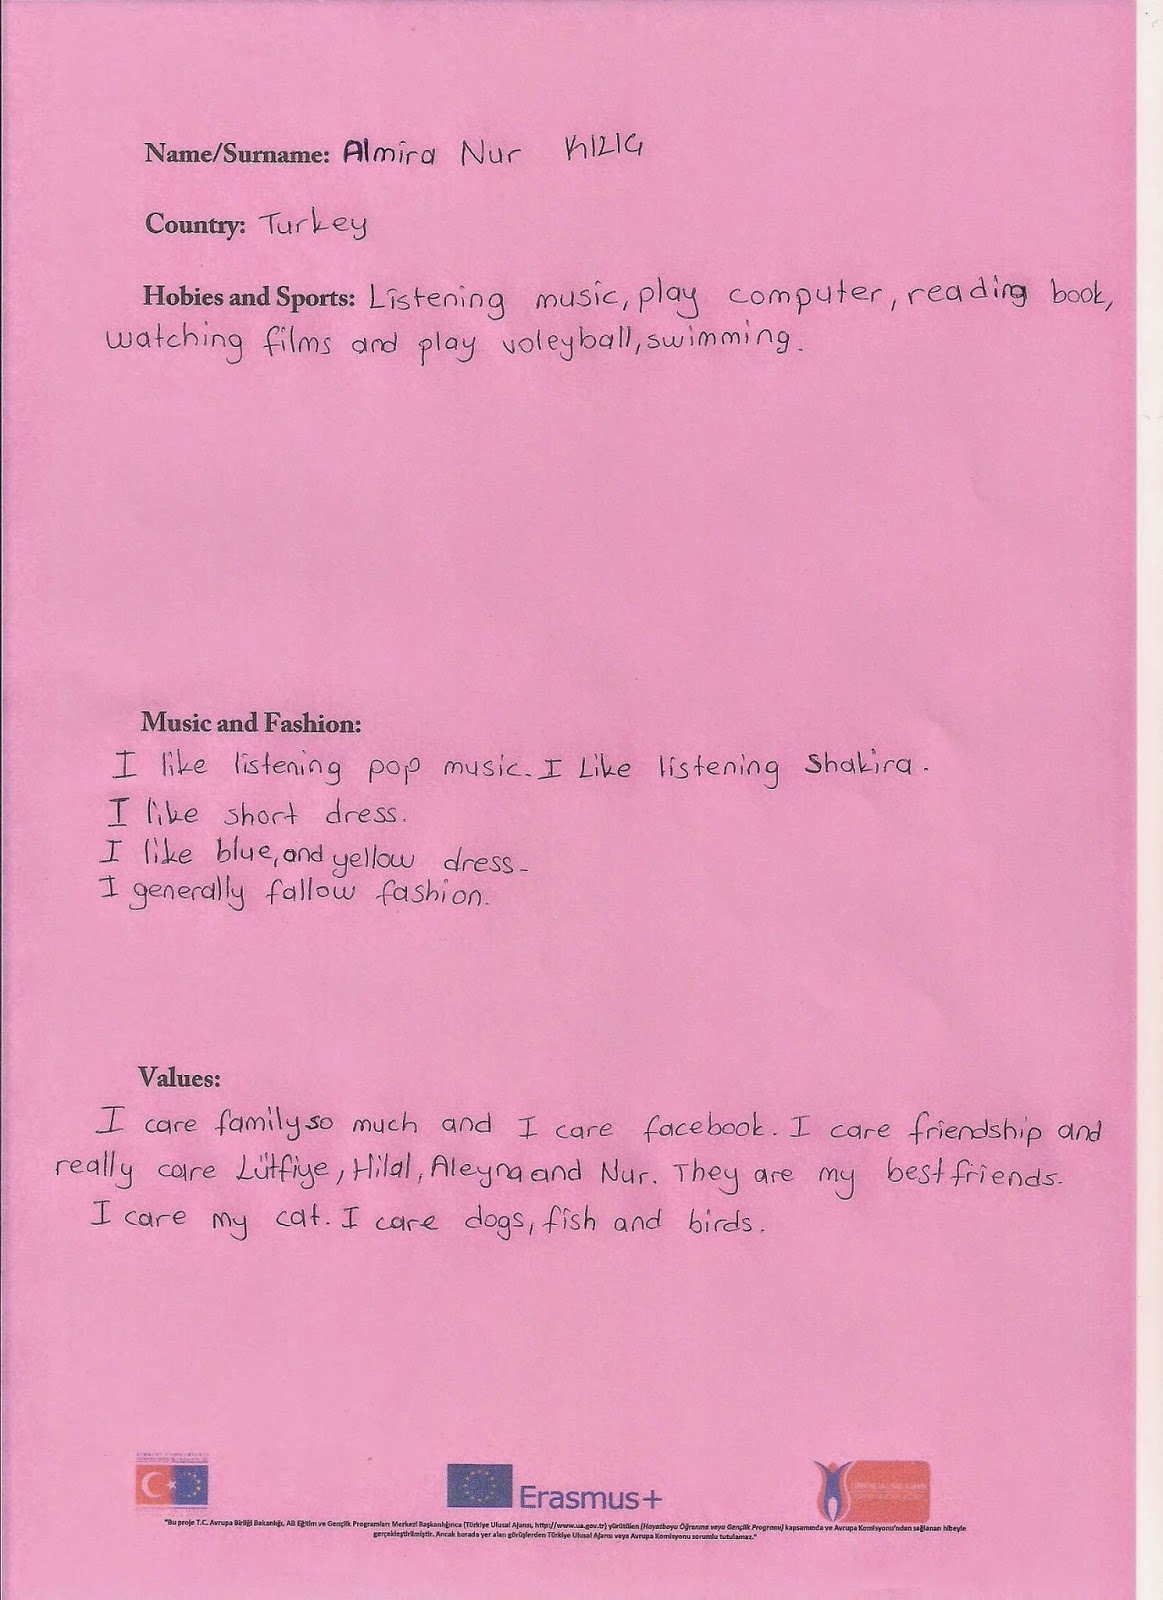 Name/Surname: Almira Nur
Country: Turkey
Hobies and Sports: Listening music, play computer, reading book,
watching films and play voleyball, swimming.
Music and Fashion:
I like listening pop music. I Like listening Shakira.
I like short dress.
I like blue, and yellow dress.
I generally fallow fashion.
Values:
I care family so much and I care facebook. I care friendship and
really care Lütfiye, Hilal, Aleyna and Nur. They are my best friends.
I care my cat. I care dogs, fish and birds.
Erasmus+
"Bu proje T.C. Avrupa Birliği Bakanlığı, AB Eğitim ve Gençlik Programları Merkezi Başkanlığınca (Türkiye Ulusal Ajansı, http://www.ua.gov.tr) yürütülen (Hayatboyu Öğrenme veya Gençlik Programı) kapsamında ve Avrupa Komisyonu'ndan sağlanan hibeyle
gerçekleştirilmiştir. Ancak burada yer alan görüşlerden Türkiye Ulusal Ajansı veya Avrupa Komisyonu sorumlu tutulamaz."